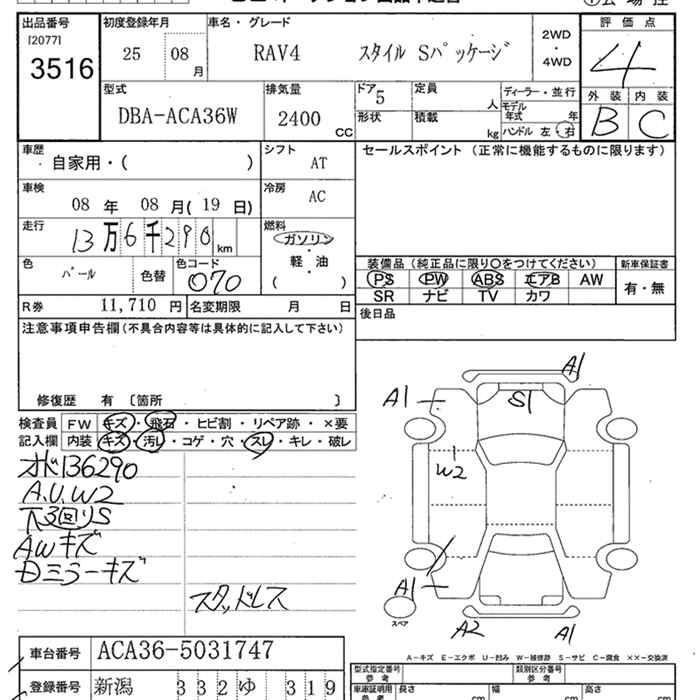 出品番号 初度登録年月 車名・グレード 評価点
[2077] 3516 25 08月 RAV4 スタイル Sパッケージ 2WD・4WD 4
型式 排気量 ドア 定員 ディーラー・並行 外装 内装
DBA-ACA36W 2400CC 5 人 モデル年式 年 B C
形状 積載 kg ハンドル 左・右
車歴 シフト セールスポイント（正常に機能するものに限ります）
自家用・（ ） AT
車検 冷房
08年 08月(19日) AC
走行 燃料
13万6千290km ガソリン・軽・油・（ ）
色 色替 色コード 装備品（純正品に限り〇をつけてください） 新車保証書
パール 070 PS PW ABS エアB AW 有・無
SR ナビ TV カワ
R券 11,710円 名変期限 月 日 後日品
注意事項申告欄（不具合内容等は具体的に記入して下さい）
修復歴 有 〔箇所 〕
検査員 FW キズ・飛石・ヒビ割・リペア跡・×要
記入欄 内装 キズ・汚レ・コゲ・穴・スレ・キレ・破レ
オド136290
A.U.W2
下回りS
AWキズ
Dミラーキズ
スタッドレス
A1
A1 S1
W2
A1
スペア
A2 A1
A-キズ E-エクボ U-凹み W-補修跡 S-サビ C-腐食 ××-交換済
車台番号 ACA36-5031747
型式指定番号 参考 類別区分番号 参考
登録番号 新潟 332 ゆ 319
車庫証明用 参考 長さ cm 幅 cm 高さ cm